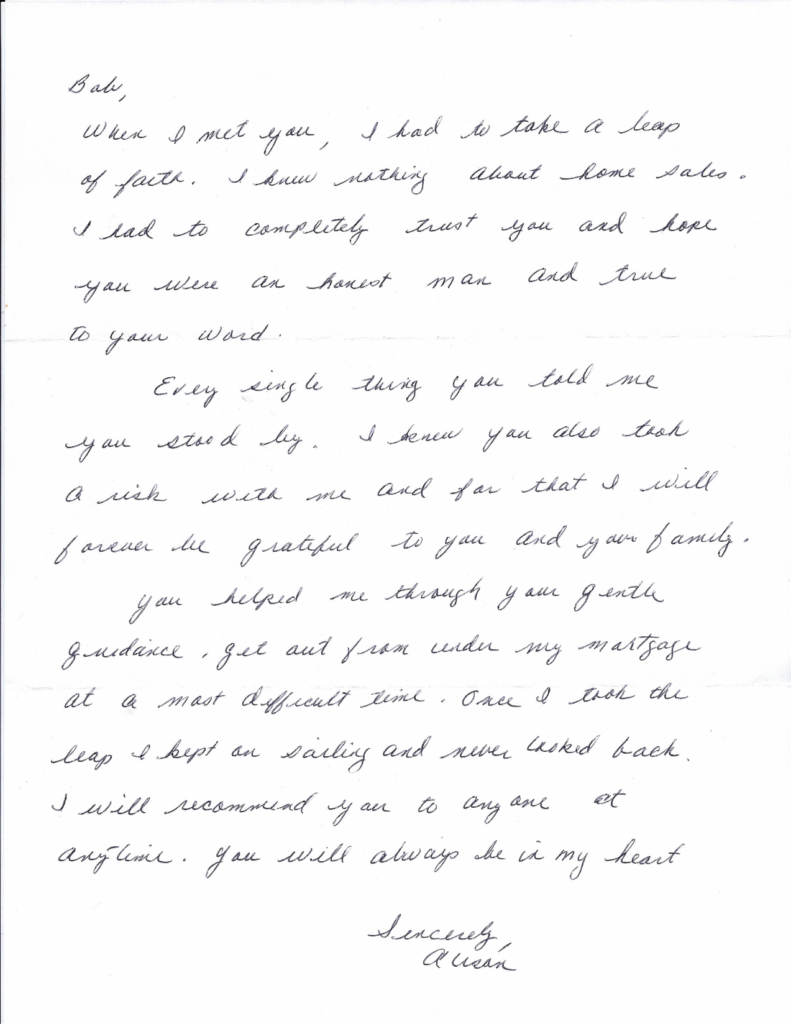 Bob,
When I met you, I had to take a leap
of faith. I knew nothing about home sales.
I had to completely trust you and hope
you were an honest man and true
to your word.
Every single thing you told me
you stood by. I knew you also took
a risk with me and for that I will
forever be grateful to you and your family.
You helped me through your gentle
guidance, get out from under my mortgage
at a most difficult time. Once I took the
leap I kept on sailing and never looked back.
I will recommend you to anyone at
anytime. You will always be in my heart
Sincerely,
Alison